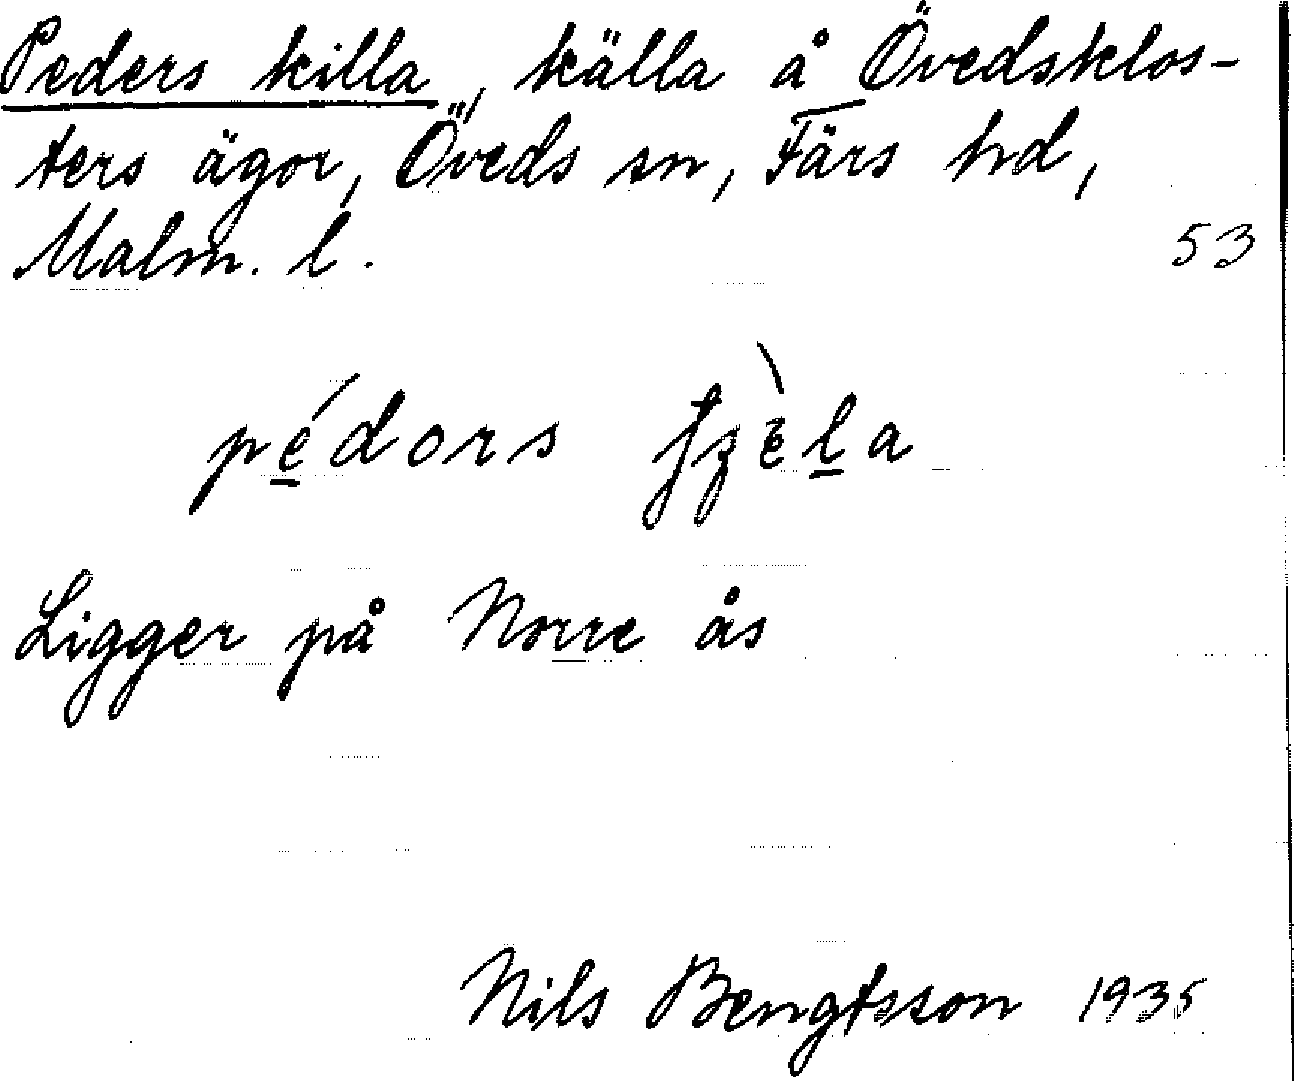 Peders killa, källa å Övedsklos-
ters ägor, Öveds sn, Färs hd,
Malm. l.
53
pédors
Ligger på Norre ås
Nils Bengtsson 1935